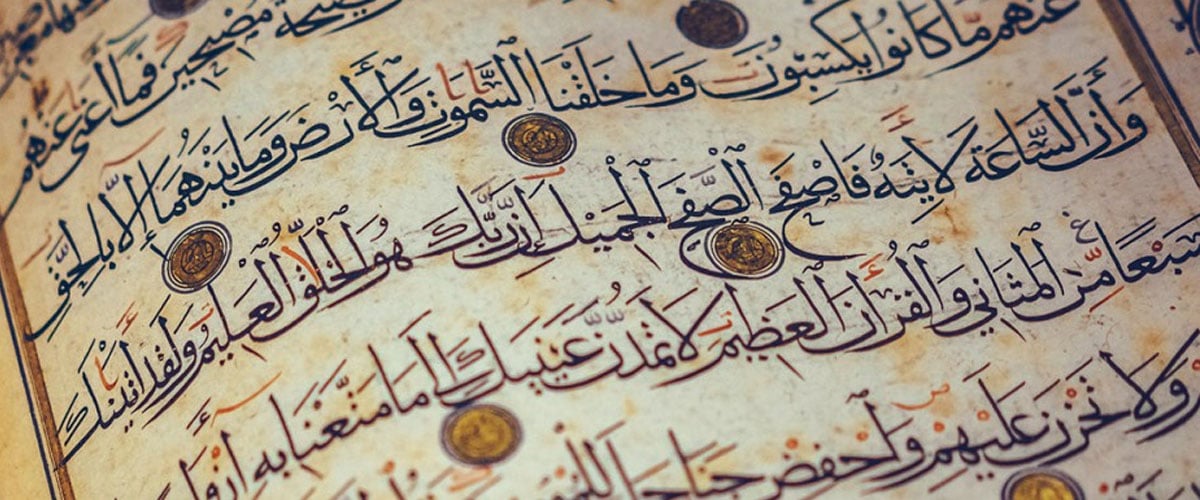 مصبحين فما أغنى عنهم
عنهم ما كانوا يكسبون وما خلقنا السموت والأرض وما بينهما إلا بالحق
وأن الساعة لاتية فاصفح الصفح الجميل إن ربك هو الخلق العليم ولقد اتينك
سبعا من المثاني والقرأن العظيم لا تمدن عينيك إلى ما متعنا به
ولا تحزن عليهم واخفض جناحك